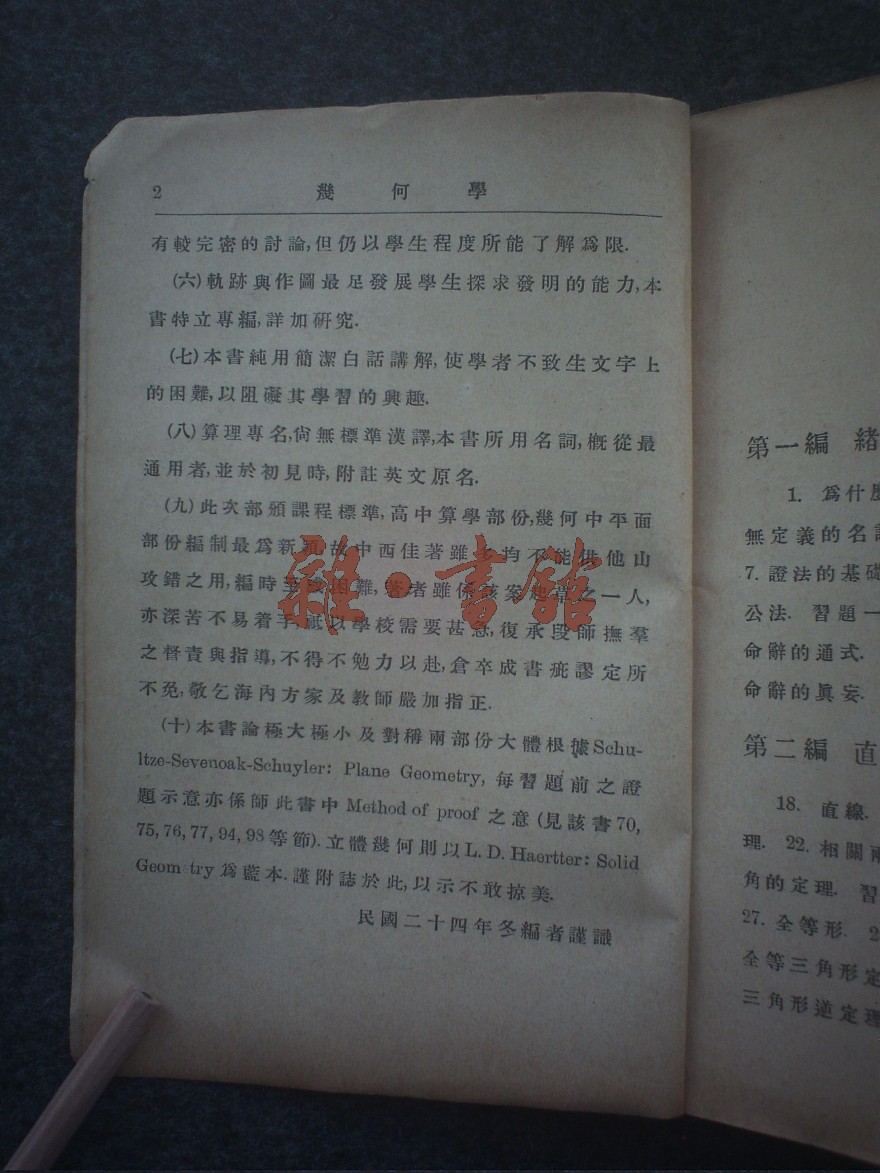 2 幾何學
有較完密的討論,但仍以學生程度所能了解爲限.
(六)軌跡與作圖最足發展學生探求發明的能力,本
書特立專編,詳加研究.
(七)本書純用簡潔白話講解,使學者不致生文字上
的困難,以阻礙其學習的興趣.
(八)算理專名,尙無標準漢譯,本書所用名詞,槪從最
通用者,並於初見時,附註英文原名.
(九)此次部頒課程標準,高中算學部份,幾何中平面
部份編制最爲新穎,故中西佳著雖多均不能供他山
攻錯之用,編時至感困難,著者雖係該案起草之一人,
亦深苦不易着手,祇以學校需要甚急,復承段師撫羣
之督責與指導,不得不勉力以赴,倉卒成書疵謬定所
不免,敬乞海內方家及教師嚴加指正.
(十)本書論極大極小及對稱兩部份大體根據Schu-
ltze-Sevenoak-Schuyler: Plane Geometry, 每習題前之證
題示意亦係師此書中 Method of proof 之意(見該書70,
75, 76, 77, 94, 98等節).立體幾何則以L. D. Haertter: Solid
Geom try 爲藍本.謹附誌於此,以示不敢掠美.
民國二十四年冬編者謹識
雜·書館
第一編 緒
1. 爲什麼
無定義的名
7. 證法的基礎
公法. 習題一
命辭的通式.
命辭的眞妄.
第二編 直
18. 直線.
理. 22. 相關兩
角的定理. 習
27. 全等形. 2
全等三角形定
三角形逆定理